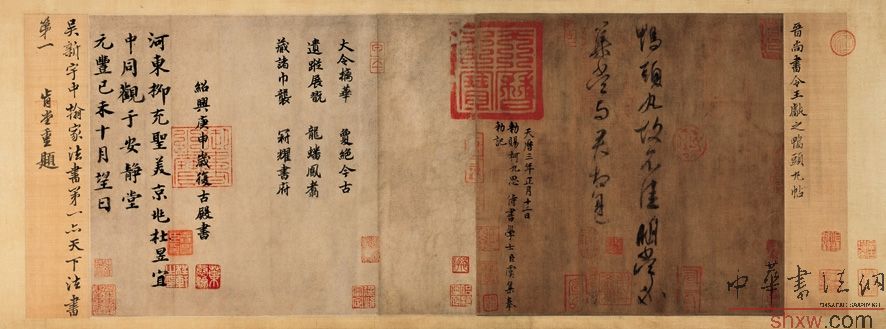 晉尚書令王獻之鴨頭丸帖
鴨頭丸故不佳明當必
集當與君相見
天曆三年正月十二日
勑賜柯九思 侍書學士臣虞集奉
勑記
大令摛華 敻絕今古
遺蹤展翫 龍蟠鳳翥
藏諸巾襲 冠耀書府
紹興庚申歲復古殿書
河東柳充聖美京兆杜昱宜
中同觀于安靜堂
元豐己未十月望日
吳新宇中翰家法書第一亦天下法書
第一 肯堂重題
中華書法網
shxw.com